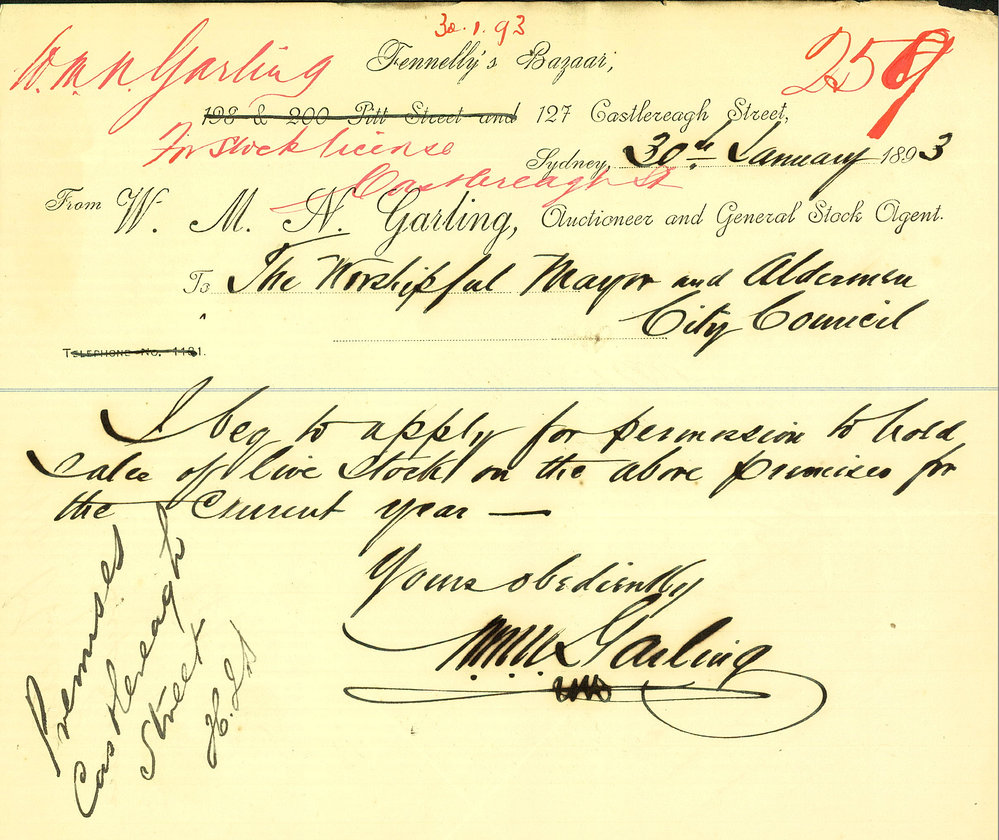 30.1.93
W.M.N. Garling
Fennelly's Bazaar,
259
198 & 200 Pitt Street and 127 Castlereagh Street,
For stock license
Sydney, 30th January 1893
Castlereagh St
From W. M. N. Garling, Auctioneer and General Stock Agent.
To The Worshipful Mayor and Aldermen
City Council
Telephone No. 1181.
I beg to apply for permission to hold
sales of live stock on the above premises for
the Current year —
Yours obediently
W.M.N. Garling
Premises
Castlereagh
Street